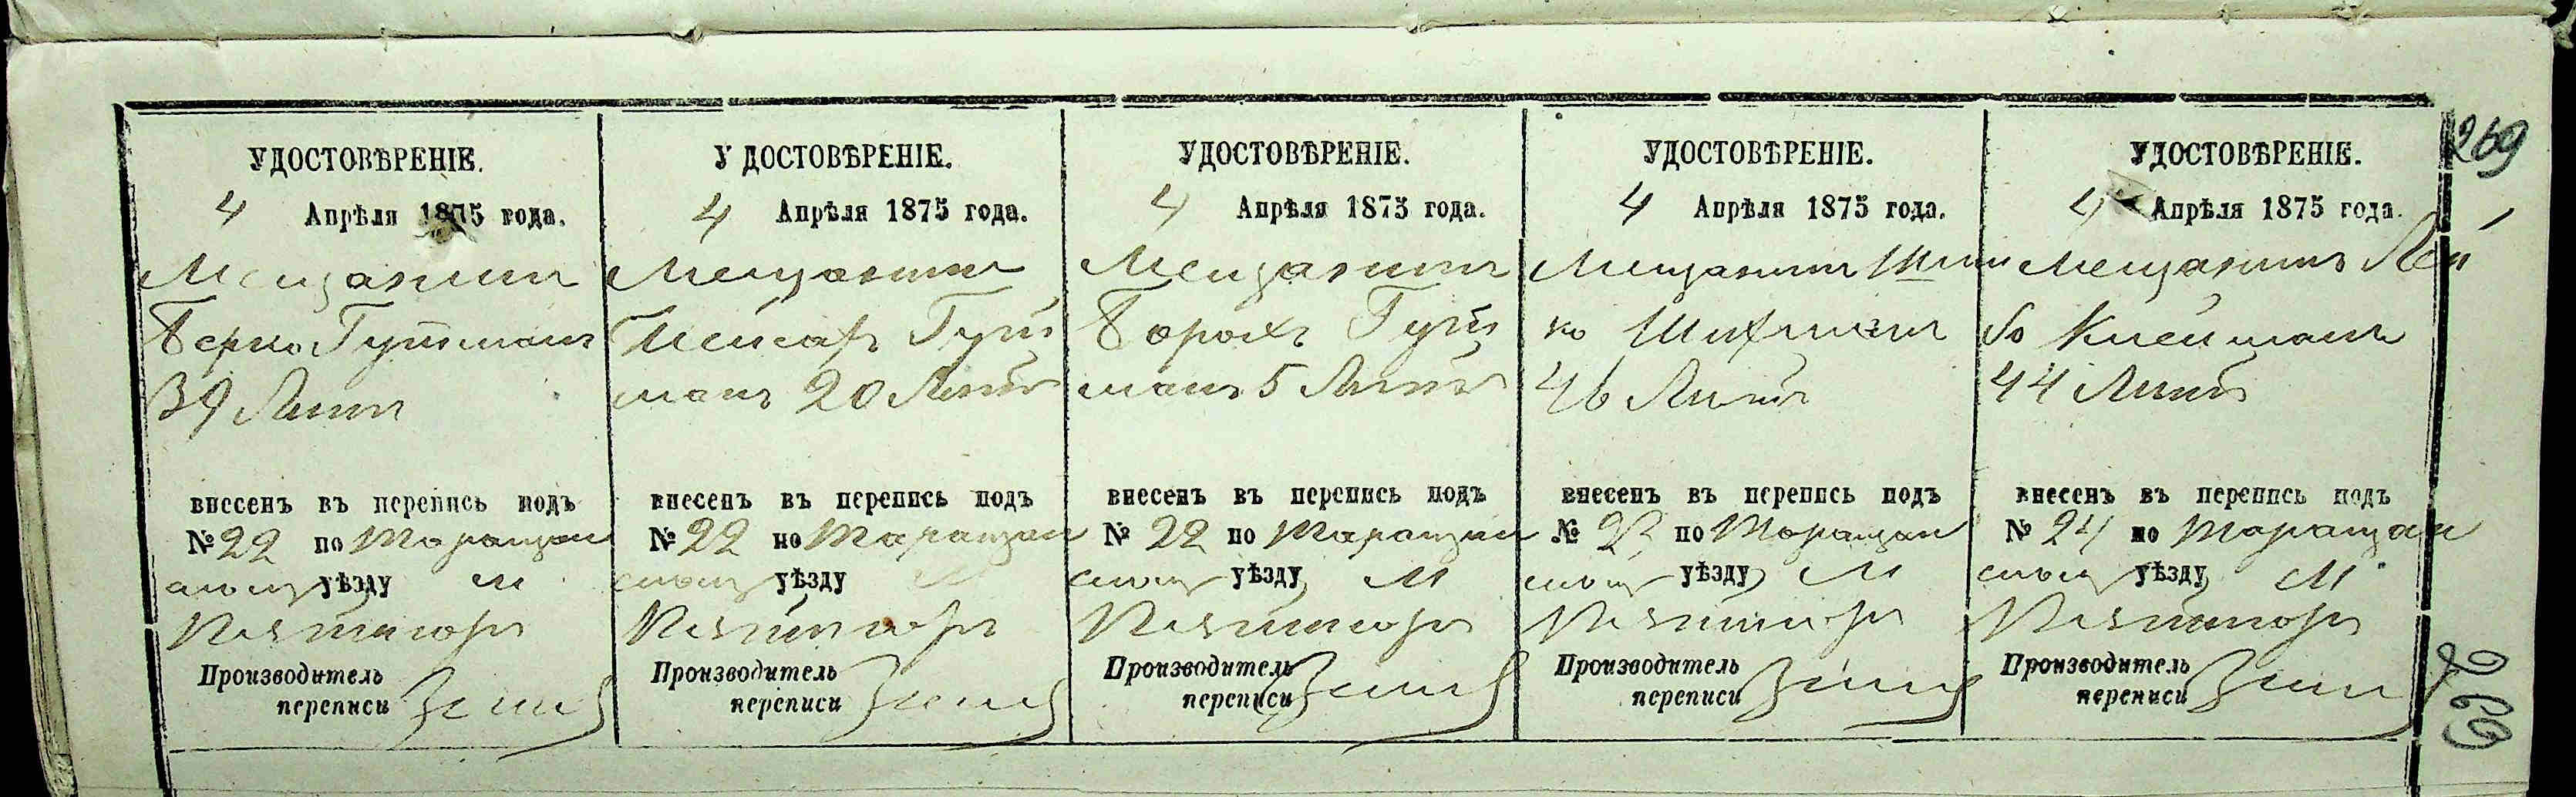 269
УДОСТОВѢРЕНІЕ.
4 Апрѣля 1875 года.
Мещанин
Берко Гутман
39 Лѣтъ
внесенъ въ перепись подъ
№ 22 по Таращан
скому уѣзду м
Производитель
переписи
УДОСТОВѢРЕНІЕ.
4 Апрѣля 1875 года.
Мещанин
Гут
манъ 20 Лѣтъ
внесенъ въ перепись подъ
№ 22 по Таращан
скому уѣзду м
Производитель
переписи
УДОСТОВѢРЕНІЕ.
4 Апрѣля 1875 года.
Мещанинъ
Борохъ Гут
манъ 5 Лѣтъ
внесенъ въ перепись подъ
№ 22 по Таращан
скому уѣзду м
Производитель
переписи
УДОСТОВѢРЕНІЕ.
4 Апрѣля 1875 года.
Мещанин
46 Лѣтъ
внесенъ въ перепись подъ
№ 23 по Таращан
скому уѣзду м
Производитель
переписи
УДОСТОВѢРЕНІЕ.
4 Апрѣля 1875 года.
Мещанинъ Лей
ба Клейман
44 Лѣтъ
внесенъ въ перепись подъ
№ 24 по Таращан
скому уѣзду м
Производитель
переписи
269